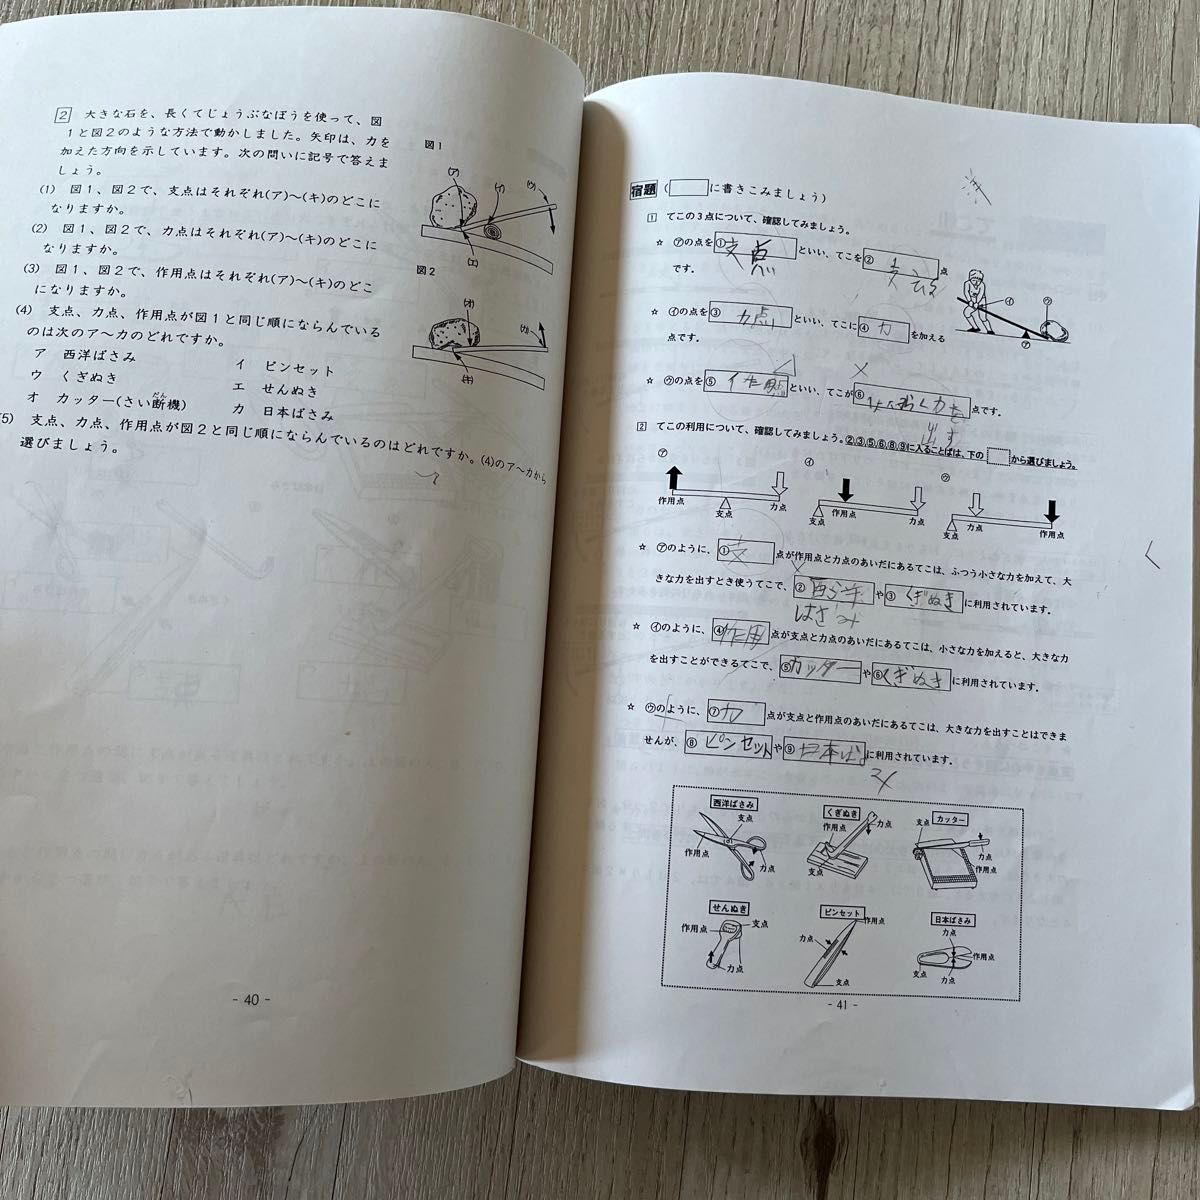 2 大きな石を、長くてじょうぶなぼうを使って、図
1と図2のような方法で動かしました。矢印は、力を
加えた方向を示しています。次の問いに記号で答えま
しょう。
(1) 図1、図2で、支点はそれぞれ(ア)～(キ)のどこに
なりますか。
(2) 図1、図2で、力点はそれぞれ(ア)～(キ)のどこに
なりますか。
(3) 図1、図2で、作用点はそれぞれ(ア)～(キ)のどこ
になりますか。
(4) 支点、力点、作用点が図1と同じ順にならんでいる
のは次のア～カのどれですか。
ア 西洋ばさみ イ ピンセット
ウ くぎぬき エ せんぬき
オ カッター(さい断機) カ 日本ばさみ
だん
5) 支点、力点、作用点が図2と同じ順にならんでいるのはどれですか。(4)のア～カから
選びましょう。
図1
(ア)
(イ)
(ウ)
(エ)
図2
(オ)
(カ)
(キ)
- 40 -
宿題 ( に書きこみましょう)
1 てこの3点について、確認してみましょう。
☆ ㋐の点を ① 支点 といい、てこを ② 点
です。
☆ ㋑の点を ③ 力点 といい、てこに ④ 力 を加える
点です。
☆ ㋒の点を ⑤ 作用点 といい、てこが ⑥ 点です。
出す
㋑
㋒
㋐
2 てこの利用について、確認してみましょう。②,③,⑤,⑥,⑧,⑨に入ることばは、下の から選びましょう。
㋐
作用点
支点
力点
㋑
支点
作用点
力点
㋒
支点
力点
作用点
☆ ㋐のように、 ① 支 点が作用点と力点のあいだにあるてこは、ふつう小さな力を加えて、大
きな力を出すとき使うてこで、 ② 西洋 や ③ くぎぬき に利用されています。
はさみ
☆ ㋑のように、 ④ 作用 点が支点と力点のあいだにあるてこは、小さな力を加えると、大きな力
を出すことができるてこで、 ⑤ カッター や ⑥ くぎぬき に利用されています。
☆ ㋒のように、 ⑦ 力 点が支点と作用点のあいだにあるてこは、大きな力を出すことはできま
せんが、 ⑧ ピンセット や ⑨ 日本ば に利用されています。
西洋ばさみ
支点
作用点
力点
くぎぬき
作用点
力点
支点
カッター
支点
力点
作用点
せんぬき
作用点
支点
力点
ピンセット
作用点
力点
支点
日本ばさみ
力点
作用点
支点
力点
- 41 -